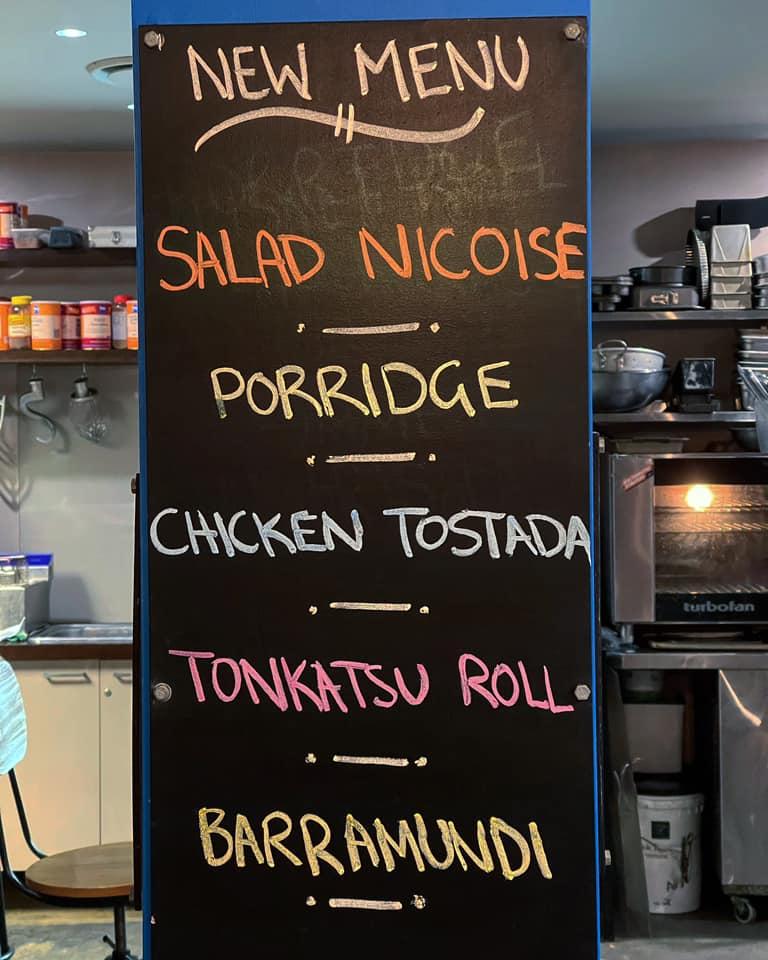 NEW MENU
SALAD NICOISE
PORRIDGE
CHICKEN TOSTADA
TONKATSU ROLL
BARRAMUNDI
turbofan